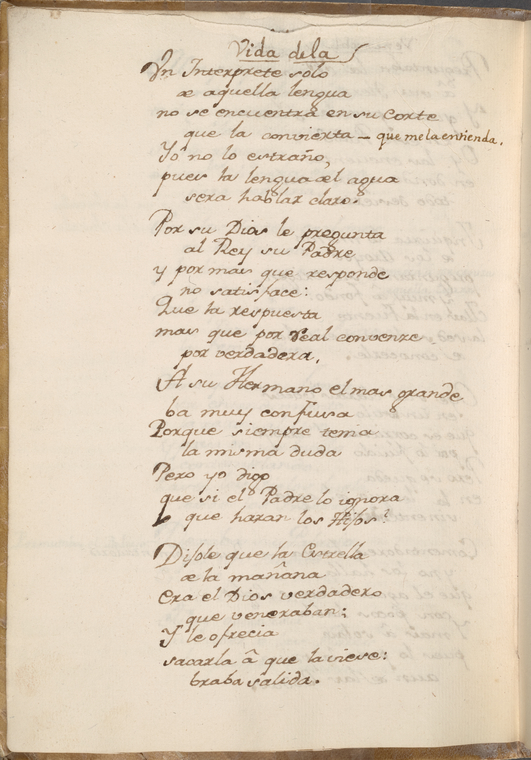 Vida de la
Un Interprete solo
de aquella lengua
no se encuentra en su Corte
que la convierta – que me la entienda.
Yo no lo estraño,
pues la lengua del agua
sera hablar claro.
Por su Dios le pregunta
al Rey su Padre
y por mas que responde
no satisface:
Que la respuesta
mas que por Real convenze
por verdadera.
A su Hermano el mas grande
ba muy confusa
Porque siempre tenia
la misma duda
Pero yo digo
que si el Padre lo ignora
que haran los Hijos?
Dijole que la Estrella
de la mañana
era el Dios verdadero
que veneraban:
Y le ofrecia
sacarla â que la viese:
braba salida.